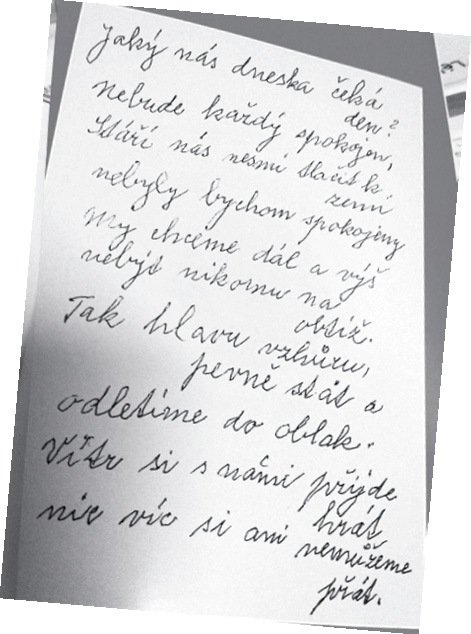 Jaký nás dneska čeká
den?
nebude každý spokojen,
Stáří nás nesmí tlačit k
zemi
nebyly bychom spokojeny
My chceme dál a výš
nebýt nikomu na
obtíž.
Tak hlavu vzhůru,
pevně stát a
odletíme do oblak.
Vítr si s námi přijde
hrát
nic víc si ani nemůžeme
přát.